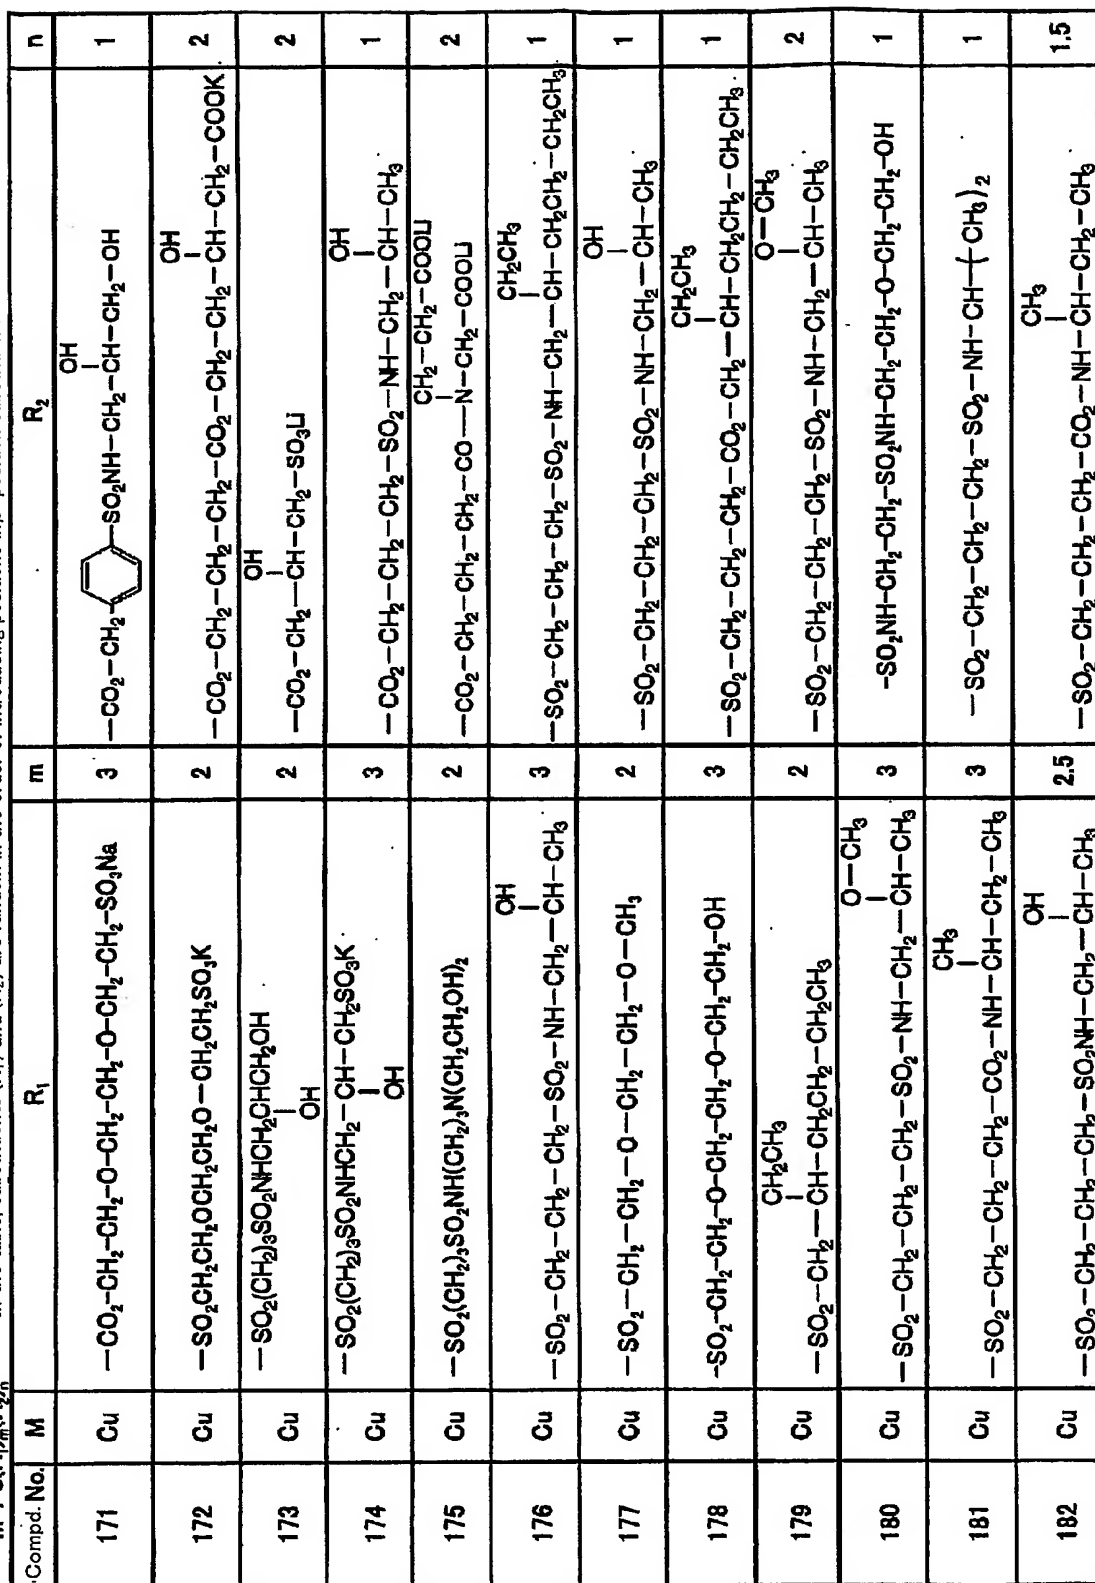 Compd. No. M R₁ m R₂ n
171 Cu —CO₂-CH₂-CH₂-O-CH₂-CH₂-O-CH₂-CH₂-SO₃Na 3 —CO₂-CH₂-SO₂NH-CH₂-CH-CH₂-OH 1
OH
172 Cu -SO₂CH₂CH₂OCH₂CH₂O-CH₂CH₂SO₃K 2 —CO₂-CH₂-CH₂-CO₂-CH₂-CH₂-CH-CH₂-COOK 2
OH
173 Cu —SO₂(CH₂)₃SO₂NHCH₂CHCH₂OH 2 —CO₂-CH₂—CH-CH₂-SO₃Li 2
OH
OH
174 Cu —SO₂(CH₂)₃SO₂NHCH₂-CH-CH₂SO₃K 3 —CO₂-CH₂-CH₂-CH₂-SO₂-NH-CH₂-CH-CH₃ 1
OH
OH
175 Cu —SO₂(CH₂)₃SO₂NH(CH₂)₃N(CH₂CH₂OH)₂ 2 —CO₂-CH₂-CH₂-CH₂-CO-N-CH₂-COOLi 2
CH₂-CH₂-COOLi
176 Cu —SO₂-CH₂-CH₂-CH₂-SO₂-NH-CH₂-CH-CH₃ 3 —SO₂-CH₂-CH₂-CH₂-SO₂-NH-CH₂-CH-CH₂CH₂-CH₂CH₃ 1
OH
CH₂CH₃
177 Cu —SO₂-CH₂-CH₂-O-CH₂-CH₂-O-CH₃ 2 —SO₂-CH₂-CH₂-CH₂-SO₂-NH-CH₂-CH-CH₃ 1
OH
178 Cu -SO₂-CH₂-CH₂-O-CH₂-CH₂-O-CH₂-CH₂-OH 3 —SO₂-CH₂-CH₂-CH₂-CO₂-CH₂-CH-CH₂CH₂-CH₂CH₃ 1
CH₂CH₃
179 Cu —SO₂-CH₂-CH-CH₂CH₂-CH₂CH₃ 2 —SO₂-CH₂-CH₂-CH₂-SO₂-NH-CH₂-CH-CH₃ 2
CH₂CH₃
O—CH₃
180 Cu —SO₂-CH₂-CH₂-CH₂-SO₂-NH-CH₂-CH-CH₃ 3 -SO₂NH-CH₂-CH₂-SO₂NH-CH₂-CH₂-O-CH₂-CH₂-OH 1
O—CH₃
181 Cu —SO₂-CH₂-CH₂-CH₂-CO₂-NH-CH-CH₂-CH₃ 3 —SO₂-CH₂-CH₂-CH₂-SO₂-NH-CH-(CH₃)₂ 1
CH₃
182 Cu —SO₂-CH₂-CH₂-CH₂-SO₂NH-CH₂-CH-CH₃ 2.5 —SO₂-CH₂-CH₂-CH₂-CO₂-NH-CH-CH₂-CH₃ 1.5
OH
CH₃